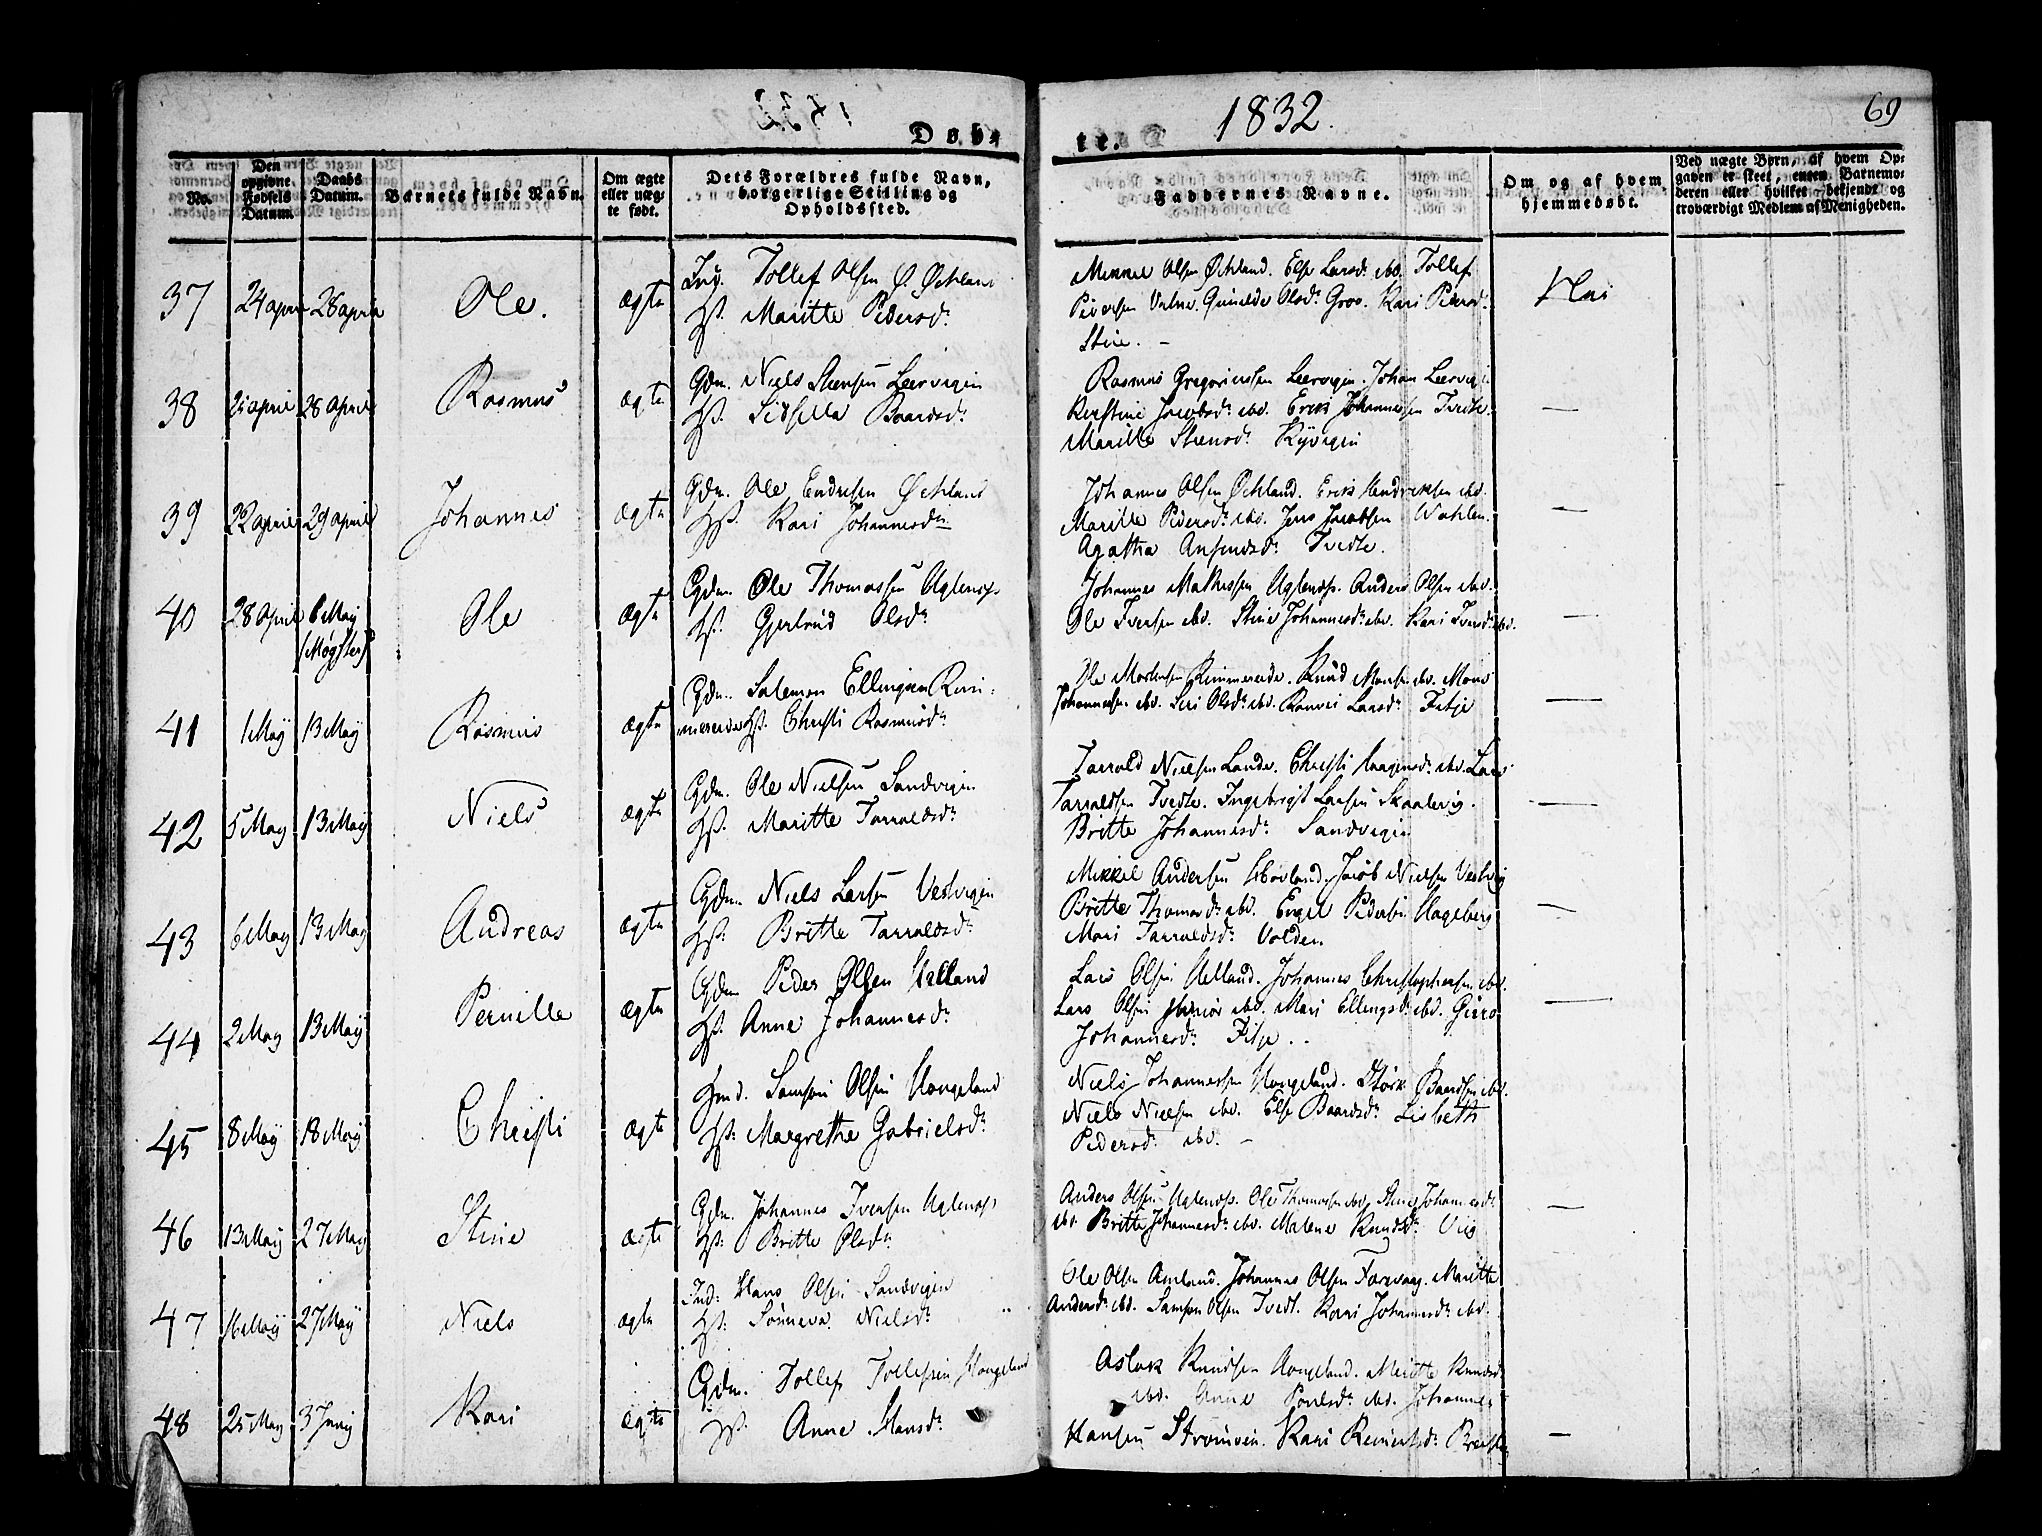 Døbte. 1832. 69
No.
Den opgivne Fødsels Datum.
Daabs Datum.
Barnets fulde Navn.
Om ægte eller uægte født.
Dets Forældres fulde Navn, borgerlige Stilling og Opholdssted.
Faddernes Navne.
Om og af hvem hjemmedøbt.
Ved uægte Børn, af hvem Opgaven er skeet, enten Barnemoderen eller hvilket bekjendt og troværdigt Medlem af Menigheden.
37 24 april 28 april Ole. ægte Tollef Olsen Ø. Økland
Hst. Maritte Pedersdr.
Mikkel Olsen Økland. Else Larsd. ibd. Tollef
Pedersen Gunilde Olsdr. Groo. Kari Pedersd.
Stine. — Nei
38 21 april 28 april Rasmus ægte Gdm. Niels Steensen Leervigen
Hst. Sidsella Baardsdr.
Rasmus Gregoriussen Leervigen. Johan Leervig
Kirstine Jacobsdr. ibd. Erik Johannessen Tvedte.
Maritte Steensdr. Kyvigen —
39 22 april 29 april Johannes ægte Gdm. Ole Endresen Økland
Hst. Kari Johannesdr.
Johannes Olsen Økland. Erik Hendriksen ibd.
Maritte Pedersdr. ibd. Jens Jacobsen Wahlen.
Agatha Ansensdr. Tvedte. —
40 28 April 6 May (Møgster) Ole ægte Gdm. Ole Thomassen Uglenes
Hst. Gjertrud Olsdr.
Johannes Mathissen Uglenes. Anders Olsen ibd.
Ole Iversen ibd. Stine Johannesdr. ibd. Kari Iversdr. ibd. —
41 1 May 13 May Rasmus ægte Gdm. Salemon Ellingsen Rim-
mereide Hst. Christi Rasmusdr.
Ole Mortensen Rimmereide. Knud Monsen ibd. Mons
Johannessen ibd. Siri Olsdr. ibd. Ranvei Larsdr. Fitje —
42 5 May 13 May Niels ægte Gdm. Ole Nielsen Sandvigen
Hst. Maritte Tarraldsdr.
Tarrald Nielsen Lande. Christi Aagesdr. ibd. Lars
Tarraldsen Tvedte. Ingebrigt Larsen Skaalevig.
Britte Johannesdr. Sandvigen —
43 6 May 13 May Andreas ægte Gdm. Niels Larsen Vestvigen
Hst. Britte Tarraldsdr.
Mikkel Andersen Hovland. Jacob Nielsen Vestvig
Britte Thomasdr. ibd. Engel Pedersen Hageberg
Mari Tarraldsdr. Volden. —
44 2 May 13 May Pernille ægte Gdm. Peder Olsen Helland
Hst. Anne Johannesdr.
Lars Olsen Helland. Johannes Christophersen ibd.
Lars Olsen junior ibd. Mari Ellingsdr. ibd. Giøro
Johannesdr. Fitje. —
45 8 May 18 May Christi ægte Hmd. Samson Olsen Hougeland
Hst. Margrethe Gabrielsdr.
Niels Johannessen Hougeland. Størk Baardsen ibd.
Niels Nielsen ibd. Else Baardsdr. Lisbeth
Pedersdr. ibd. — 
46 13 May 27 May Stine ægte Gdm. Johannes Iversen Uglenes
Hst. Britte Olsdr.
Anders Olsen Uglenes. Ole Thomassen ibd. Stine Johannesdr.
ibd. Britte Johannesdr. ibd. Malene Knudsdr. Viig —
47 16 May 27 May Niels ægte Ind. Hans Olsen Sandvigen
Hst. Sønneva Nielsdr.
Ole Olsen Amland. Johannes Olsen Færevaag. Maritte
Andersdr. ibd. Samson Olsen Tvedt. Kari Johannesdr. ibd.
48 25 May 3 Juny Kari ægte Gdm. Tollef Tollefsen Hougeland
Hst. Anne Hansdr.
Aslak Knudsen Hougeland. Maritte Knudsd.
ibd. Anne Poulsdr. ibd. Johannes
Hansen Strømøen. Kari Reinertsdr. —